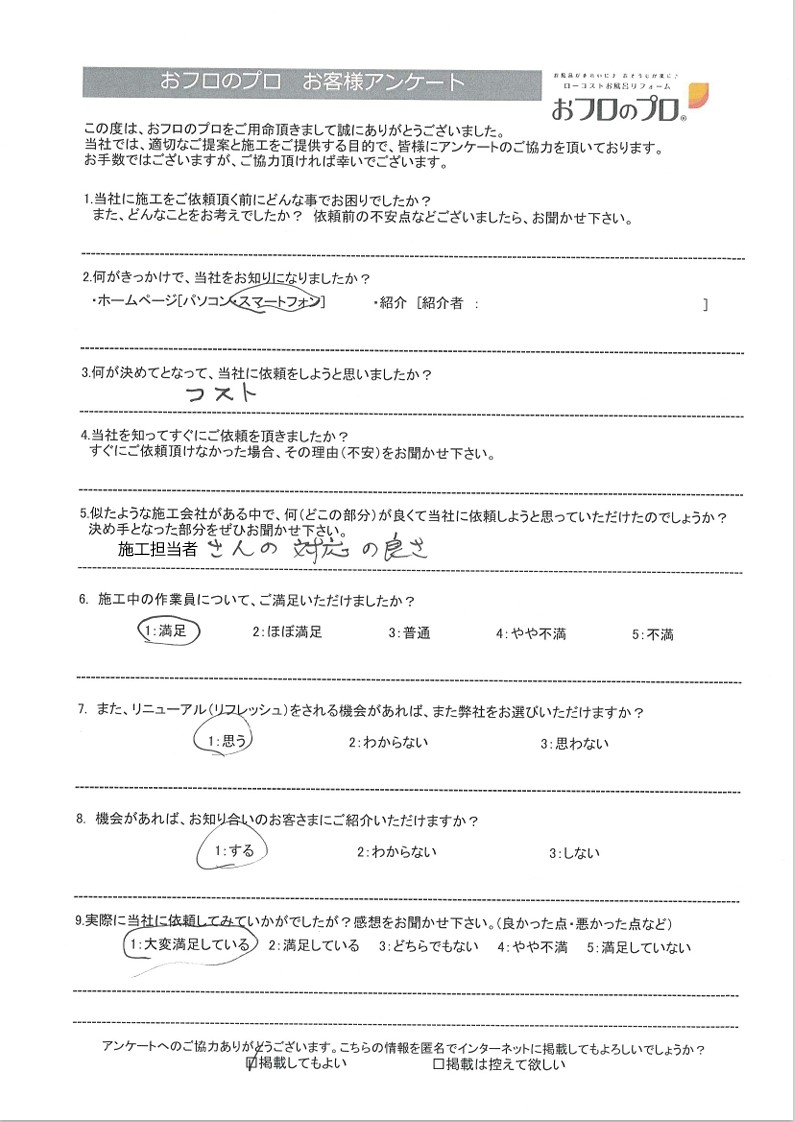 おフロのプロ　お客様アンケート
お風呂がきれいに♪ おそうじが楽に♪
ローコストお風呂リフォーム
おフロのプロ®
この度は、おフロのプロをご用命頂きまして誠にありがとうございました。
当社では、適切なご提案と施工をご提供する目的で、皆様にアンケートのご協力を頂いております。
お手数ではございますが、ご協力頂ければ幸いでございます。
1.当社に施工をご依頼頂く前にどんな事でお困りでしたか？
また、どんなことをお考えでしたか？ 依頼前の不安点などございましたら、お聞かせ下さい。
2.何がきっかけで、当社をお知りになりましたか？
・ホームページ[パソコン・スマートフォン]　・紹介 [紹介者 : ]
3.何が決めてとなって、当社に依頼をしようと思いましたか？
コスト
4.当社を知ってすぐにご依頼を頂きましたか？
すぐにご依頼頂けなかった場合、その理由(不安)をお聞かせ下さい。
5.似たような施工会社がある中で、何(どこの部分)が良くて当社に依頼しようと思っていただけたのでしょうか？
決め手となった部分をぜひお聞かせ下さい。
施工担当者 さんの 対応 の良さ
6. 施工中の作業員について、ご満足いただけましたか？
1:満足　2:ほぼ満足　3:普通　4:やや不満　5:不満
7. また、リニューアル(リフレッシュ)をされる機会があれば、また弊社をお選びいただけますか？
1:思う　2:わからない　3:思わない
8. 機会があれば、お知り合いのお客さまにご紹介いただけますか？
1:する　2:わからない　3:しない
9.実際に当社に依頼してみていかがでしたが？感想をお聞かせ下さい。(良かった点・悪かった点など)
1:大変満足している　2:満足している　3:どちらでもない　4:やや不満　5:満足していない
アンケートへのご協力ありがとうございます。こちらの情報を匿名でインターネットに掲載してもよろしいでしょうか？
☑掲載してもよい　□掲載は控えて欲しい